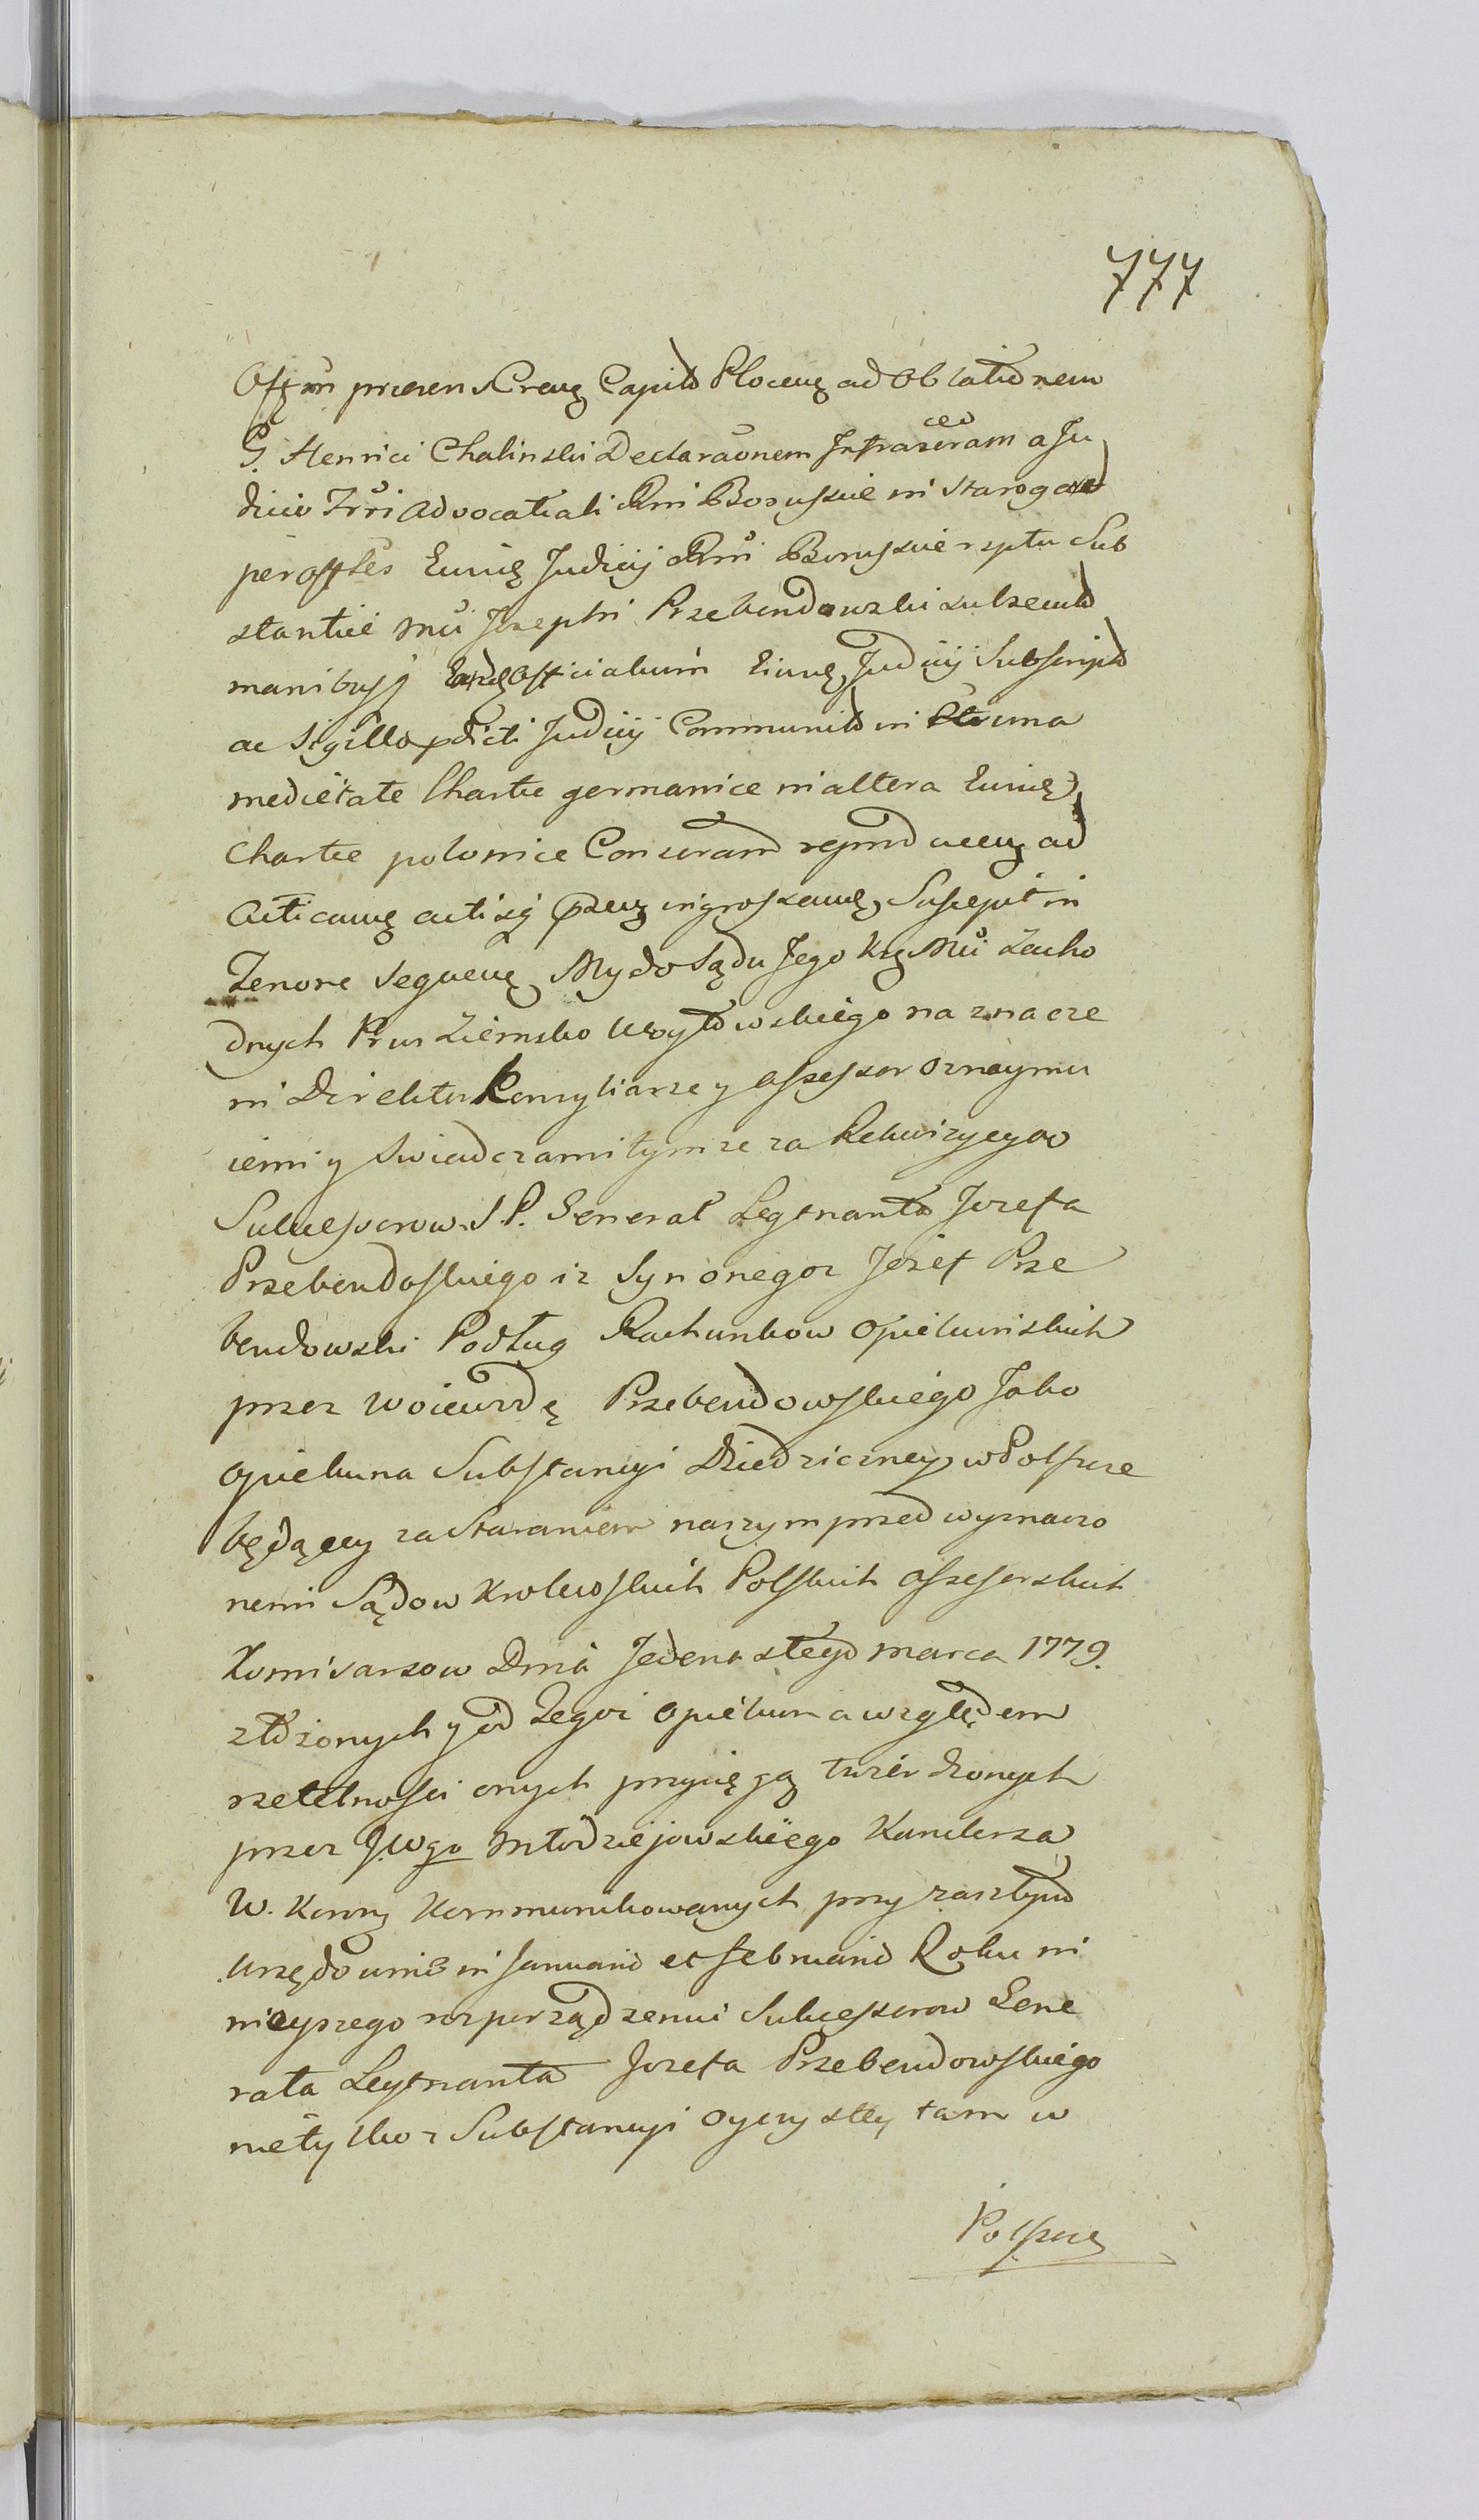 777
Offm praesen Crens Capitl Plocens ad Oblationem
G. Henrici Chalinski Declaraonem Infrascram a Ju
dicio Trri Advocatiali Rni Borussiae in Starogard
per Offles Eiusq Judicij Rni Borussiae rsptu Sub
stantiae Mci Josephi Przebendowski subsecut
manibusq Officialium Eiusq Judicij Subscript
ac Sigillo pdicti Judicij Communit in una
medietate Chartae germanice in altera Eiusq
Chartae polonice Conscram rejmd ad
Acticanq actisq ingrossanq Suscepit in
Tenore sequenq My do Sądu Jego Krq Mci Zacho
dnych Prus Ziemsko Woytowskiego naznacze
ni Direktor Konsyliarze y assessor oznaymu
iemi y swiadczami tymze za Rekwizycyą
Sukcessorow S. P. General Leytnanta Jozefa
Przebendoskiego iz Syn onegoz Jozef Prze
bendowski Podług Rachunkow Opiekunskich
przez Woiewodę Przebendowskiego Jako
Opiekuna Substancyi Dziedziczney w Polszcze
będącey za Staraniem naszym przed wyznaczo
nemi Sądow Krolewskich Polskich Assessorskich
Komisarzow Dnia Jedenastego Marca 1779.
złożonych y od Tegoz Opiekuna względem
rzetelnosci onych przysięgą twierdzonych
przez JWgo Młodziejowskiego Kanclerza
W. Koronq Kommunikowanych przy zaszłym
Urzędownie in Januario et Februario Roku ni
nieyszego rozporządzeniu Sukcessorow Gene
rała Leytnanta Jozefa Przebendowskiego
nietylko z Substancyi Oyczystey tam w
Polszcze